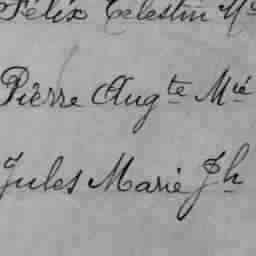 Félix Célestin
Pierre Augte Mié
Jules Marie Jh